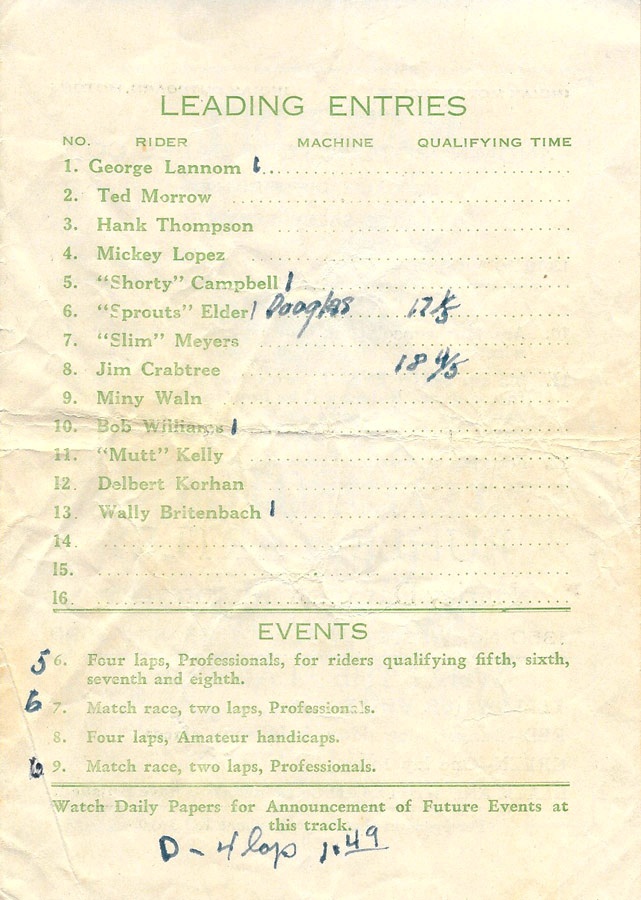 LEADING ENTRIES
NO. RIDER MACHINE QUALIFYING TIME
1. George Lannom 1
2. Ted Morrow
3. Hank Thompson
4. Mickey Lopez
5. "Shorty" Campbell 1
6. "Sprouts" Elder 1 Douglas 17 4/5
7. "Slim" Meyers
8. Jim Crabtree 18 4/5
9. Miny Waln
10. Bob Williams 1
11. "Mutt" Kelly
12. Delbert Korhan
13. Wally Britenbach 1
14.
15.
16.
EVENTS
5 6. Four laps, Professionals, for riders qualifying fifth, sixth,
seventh and eighth.
6 7. Match race, two laps, Professionals.
8. Four laps, Amateur handicaps.
6 9. Match race, two laps, Professionals.
Watch Daily Papers for Announcement of Future Events at
this track.
D - 4 lap 1.49